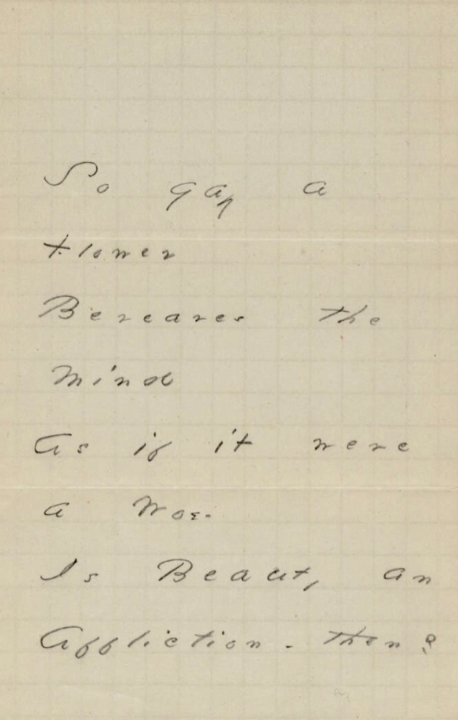 So gay a
Flower
Bereaves the
Mind
As if it were
a Woe -
Is Beauty an
Affliction - then?